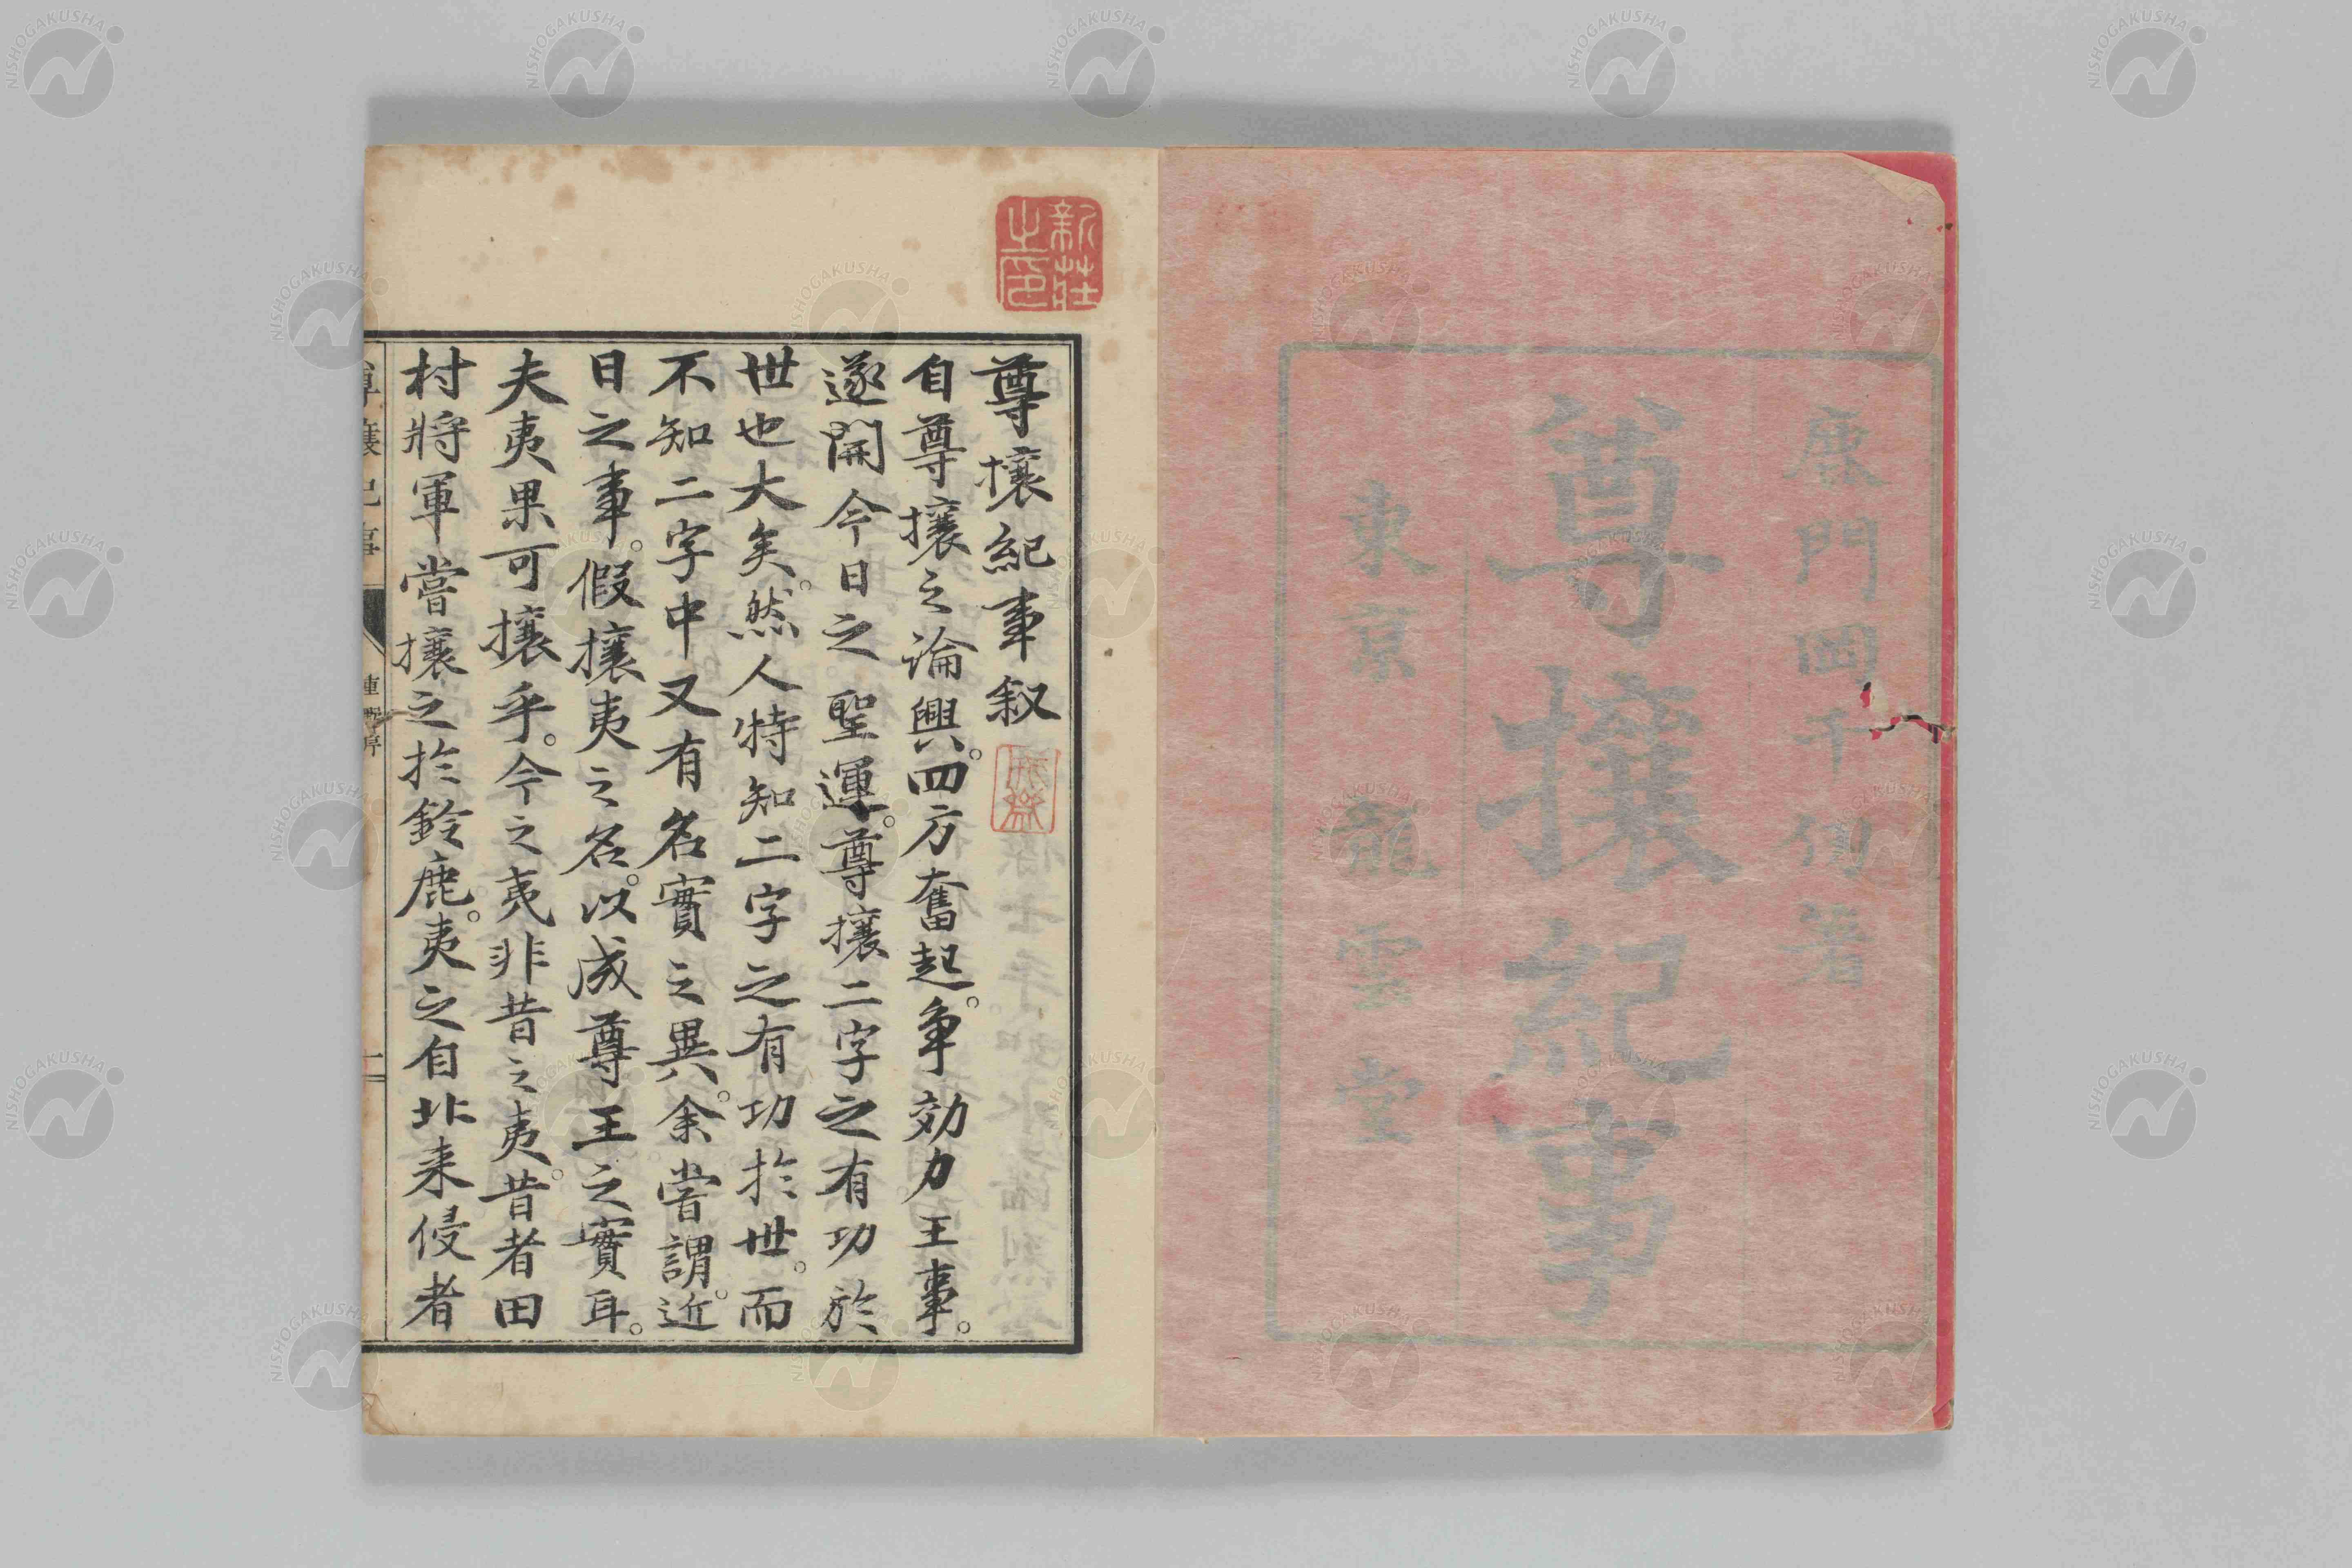 鹿門岡千仞著
尊攘紀事
東京 龍雲堂
新莊之印
尊攘紀事叙
自尊攘之論興。四方奮起。争効力王事。
遂開今日之 聖運。尊攘二字之有功於
世也大矣。然人特知二字之有功於世。而
不知二字中又有名實之異。余嘗謂。近
日之事。假攘夷之名。以成尊王之實耳。
夫夷果可攘乎。今之夷非昔之夷。昔者田
村將軍嘗攘之於鈴鹿。夷之自北来侵者
尊攘紀事
NISHOGAKUSHA